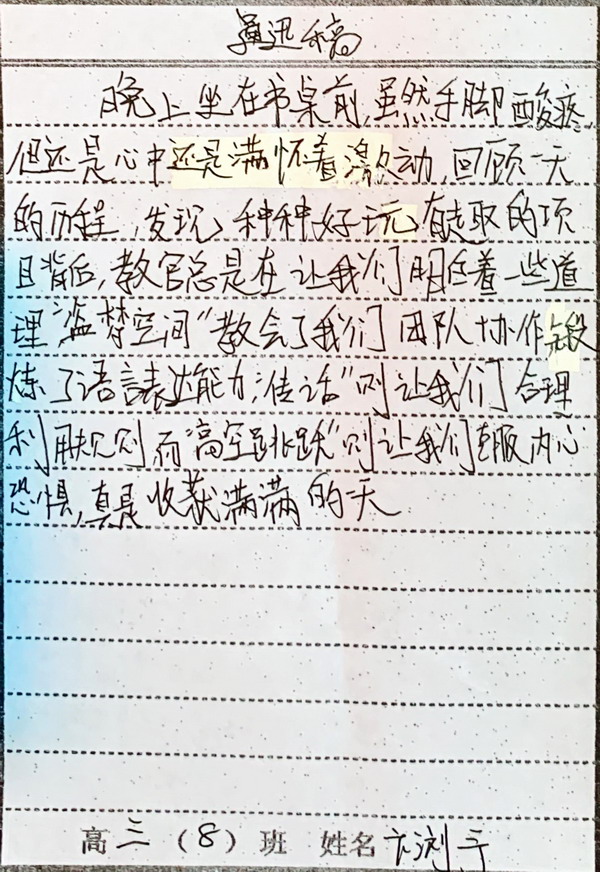 通迅稿
晚上坐在书桌前,虽然手脚酸疼,
但还是心中还是满怀着激动,回顾一天
的历程,发现,种种好玩有趣的项
目背后,教官总是在让我们明白着一些道
理"盗梦空间"教会了我们团队协作锻
炼了语言表达能力,"传话"则让我们合理
利用规则而"高空跳跃"则让我们克服内心
恐惧,真是收获满满的一天
高三(8)班 姓名